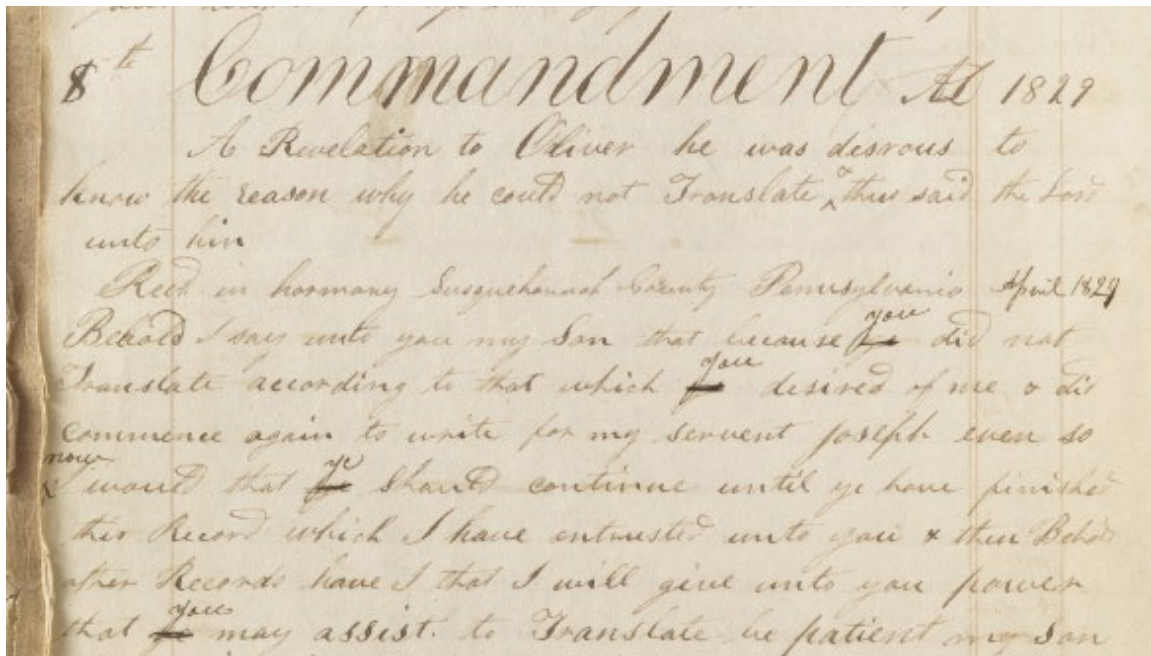 8th Commandment AD 1829
A Revelation to Oliver he was disrous to
know the reason why he could not Translate & thus said the Lord
unto him
Recd in harmony Susquehannah County Pennsylvania April 1829
you
Behold I say unto you my Son that because ye did not
you
Translate according to that which ye desired of me & did
commence again to write for my servent Joseph even so
now ye
I would that ye should continue until ye have finished
this Record which I have entrusted unto you & then Behold
other Records have I that I will give unto you power
you
that ye may assist to Translate be patient my Son